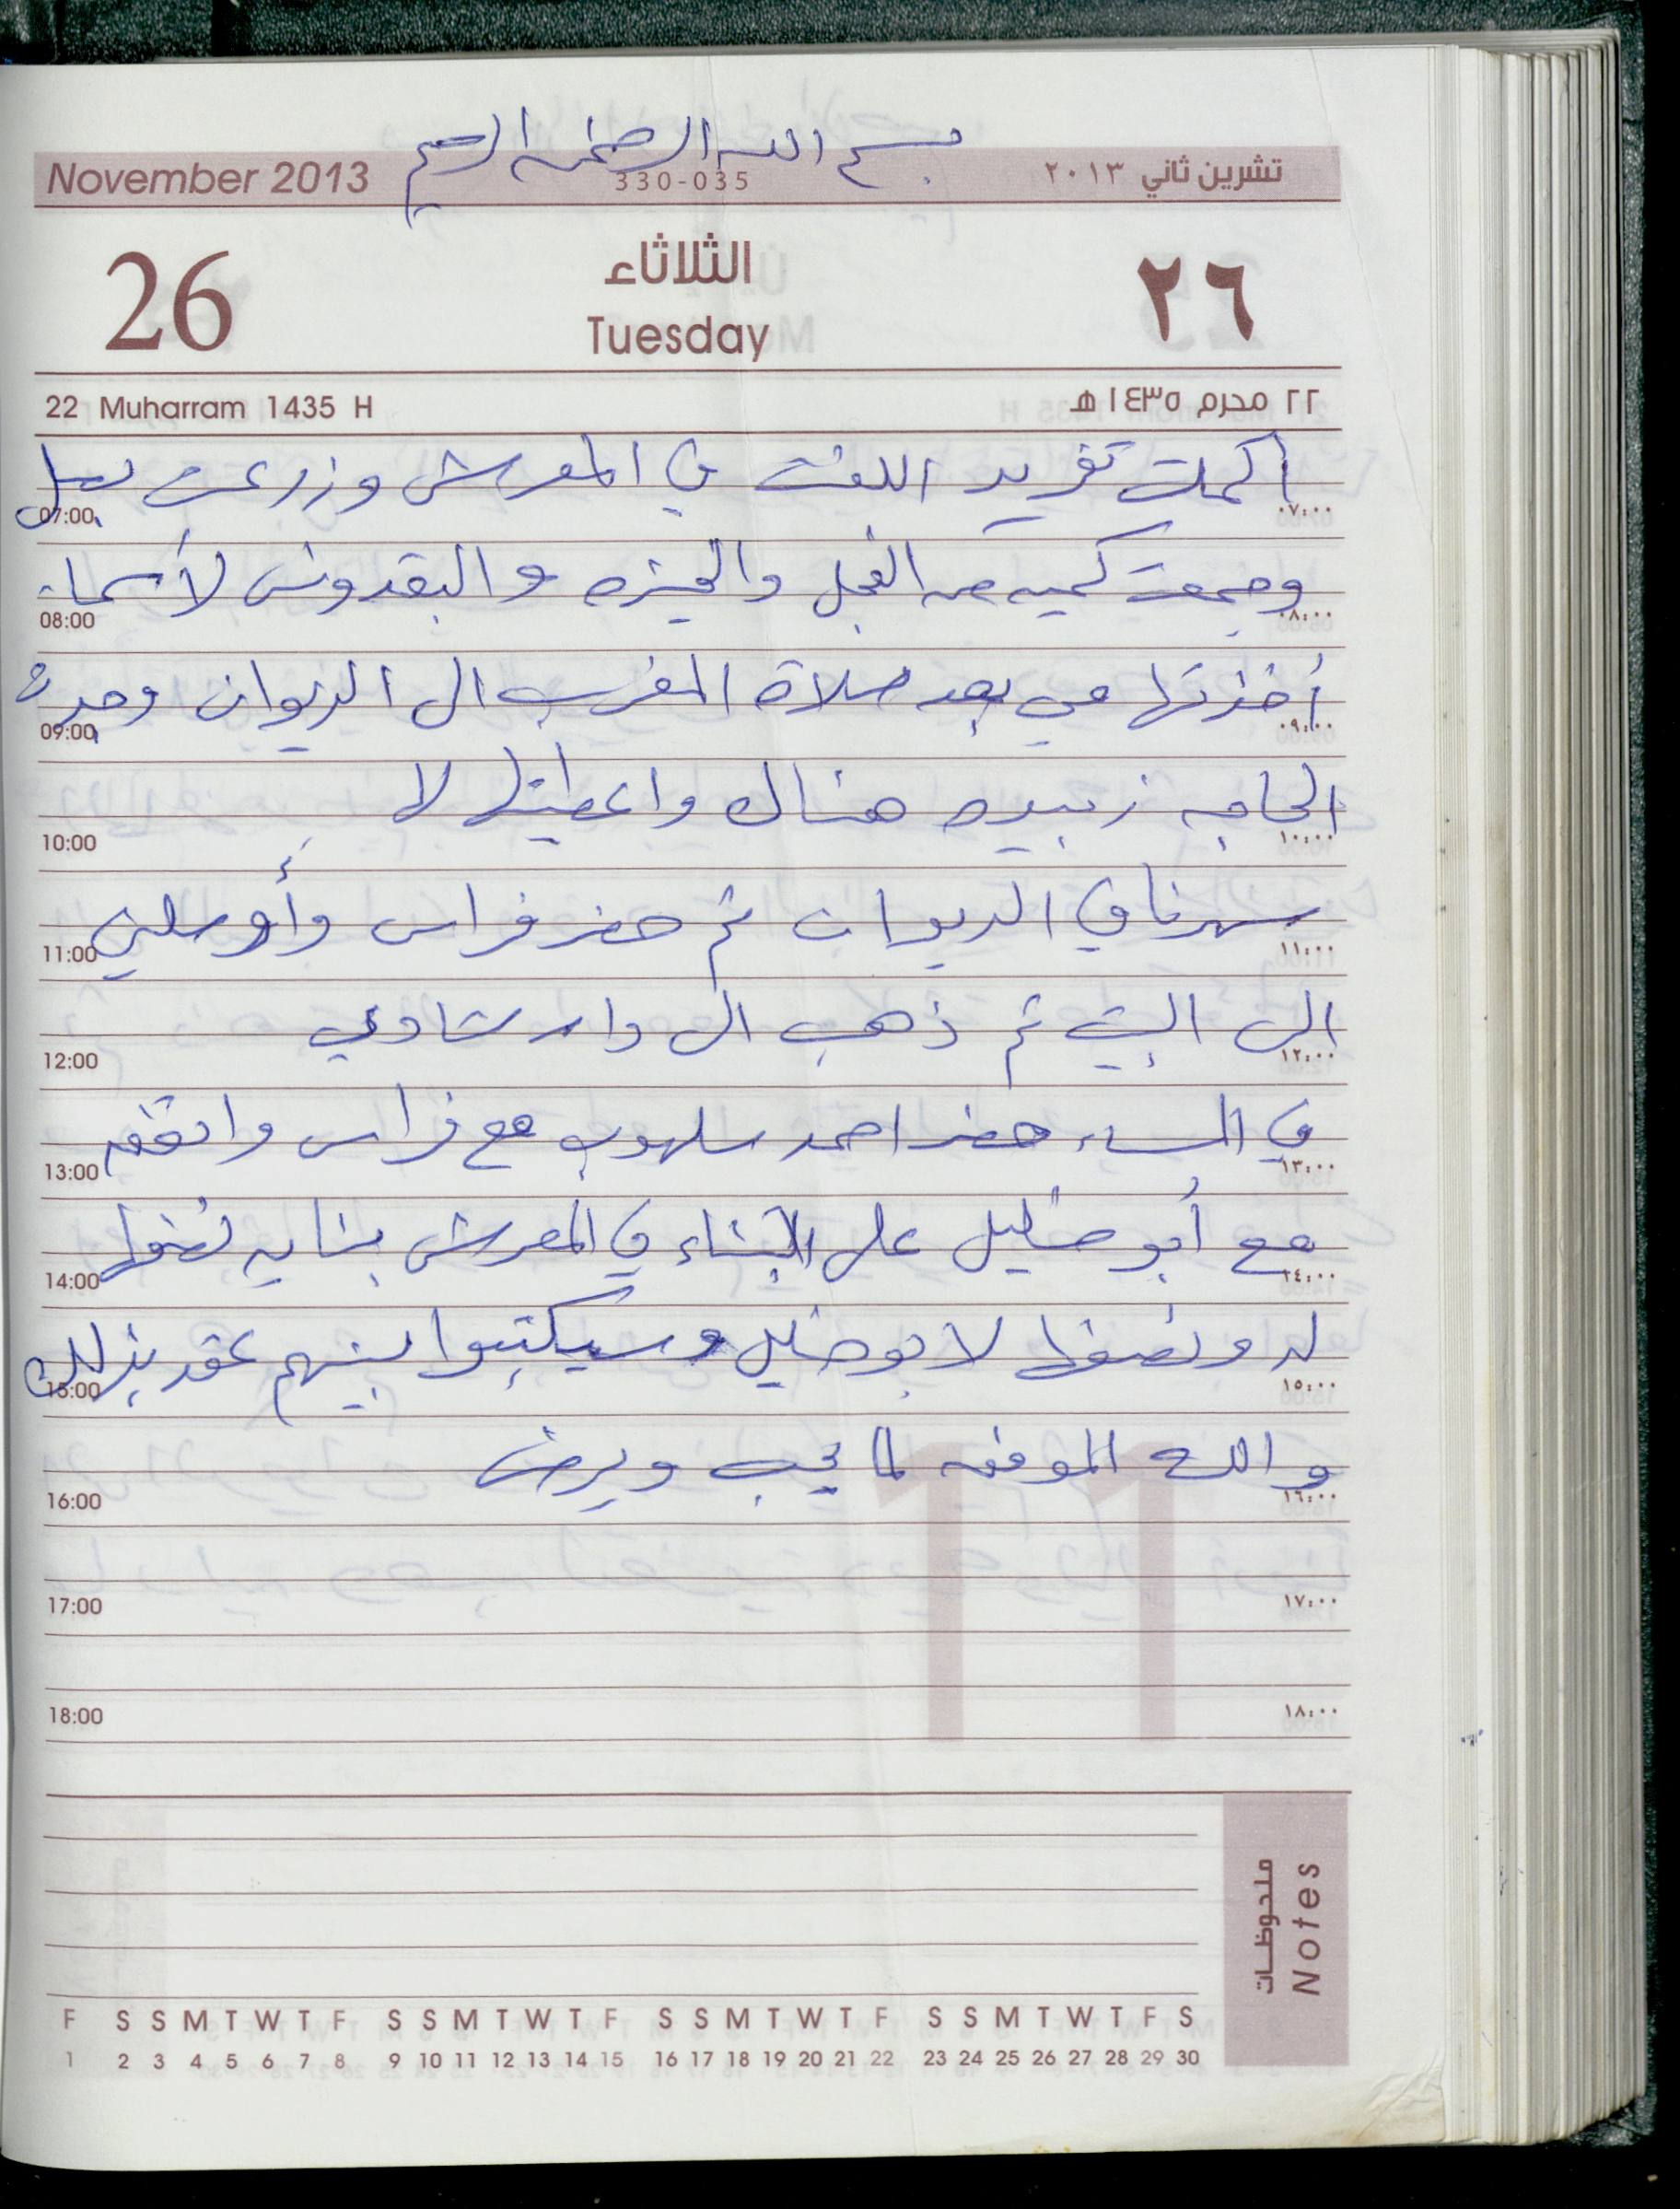 بسم الله الرحمن الرحيم
November 2013 330-035 تشرين ثاني ٢٠١٣
26 الثلاثاء ٢٦
Tuesday
22 Muharram 1435 H ٢٢ محرم ١٤٣٥ هـ
أكملت تفريد اللفت في المعرش وزرعت بصل
07:00 ٠٧:٠٠
وجمعت كميه من الفجل والخبيزه والبقدونس لأسماء
08:00 ٠٨:٠٠
أخذتها معي بعد صلاة المغرب الى الديوان وجدت
09:00 ٠٩:٠٠
الحاجه زبيده هناك واعطيتها لا
10:00 ١٠:٠٠
سهرنا في الديوان ثم حضر فراس وأوصلني
11:00 ١١:٠٠
الى البيت ثم ذهب الى دار شادي
12:00 ١٢:٠٠
في المساء حضر احمد سلهوب مع فراس واتفق
13:00 ١٣:٠٠
مع أبو خليل على البناء في المعرش بنايه نصفها
14:00 ١٤:٠٠
له ونصفها لابو خليل وسيكتبوا بينهم عقد بذلك
15:00 ١٥:٠٠
والله الموفق لما يحب ويرضى
16:00 ١٦:٠٠
17:00 ١٧:٠٠
18:00 ١٨:٠٠
11
ملحوظات
Notes
F S S M T W T F S S M T W T F S S M T W T F S S M T W T F S
1 2 3 4 5 6 7 8 9 10 11 12 13 14 15 16 17 18 19 20 21 22 23 24 25 26 27 28 29 30